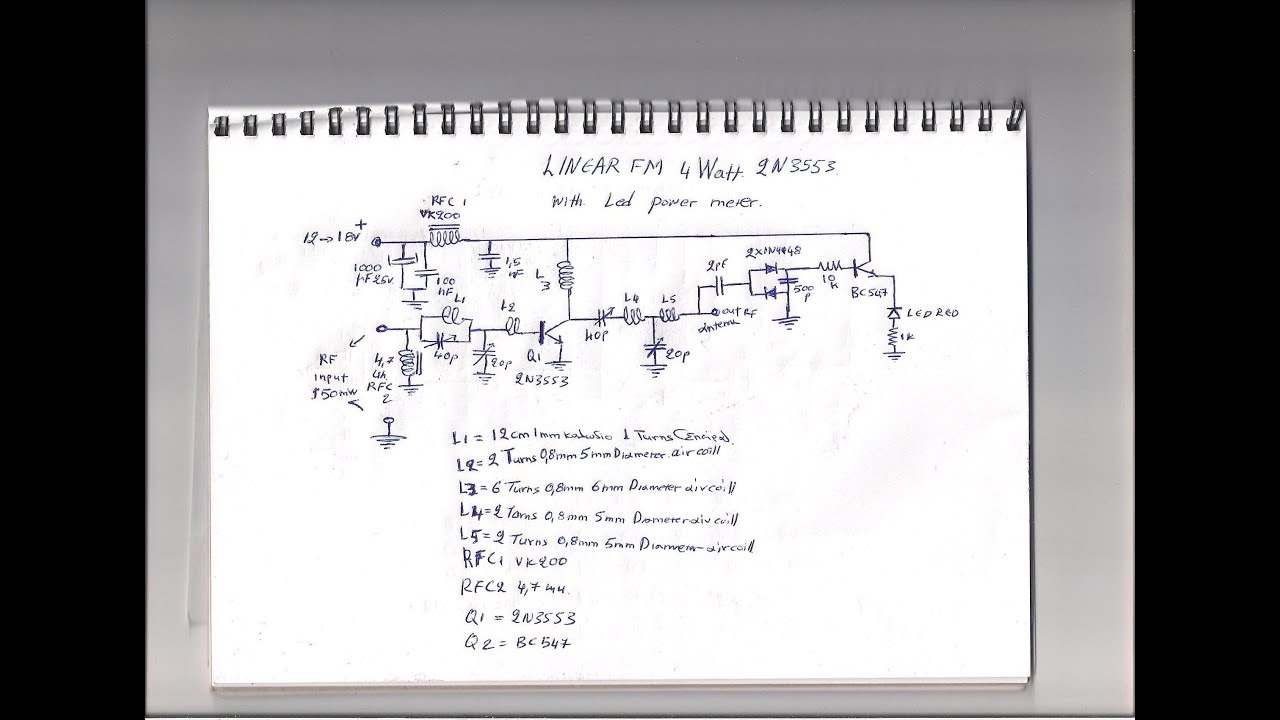 LINEAR FM 4 Watt. 2N3553.
with Led power meter.
RFC 1
VK200
12→18V +
1000
µF 25V.
100
nF
1,5
nF
L
3
L1
L2
40p
20p
Q1
2N3553
RF
input
4,7
uh
RFC
2
40p
L4
L5
20p
2pF
2x1N4148
500
p
10
k
BC547
out RF
antenna
LED RED
1k
L1 = 12cm 1mm 1 Turns
L2= 2 Turns 0,8mm 5mm Diameter. air coill
L3 = 6 Turns 0,8mm 6mm Diameter air coill
L4=2 Torns 0,8mm 5mm Diameter air coill
L5=2 Turns 0,8mm 5mm Diameter air coill
RFC1 VK200
RFC2 4,7
Q1 = 2N3553
Q2 = BC547